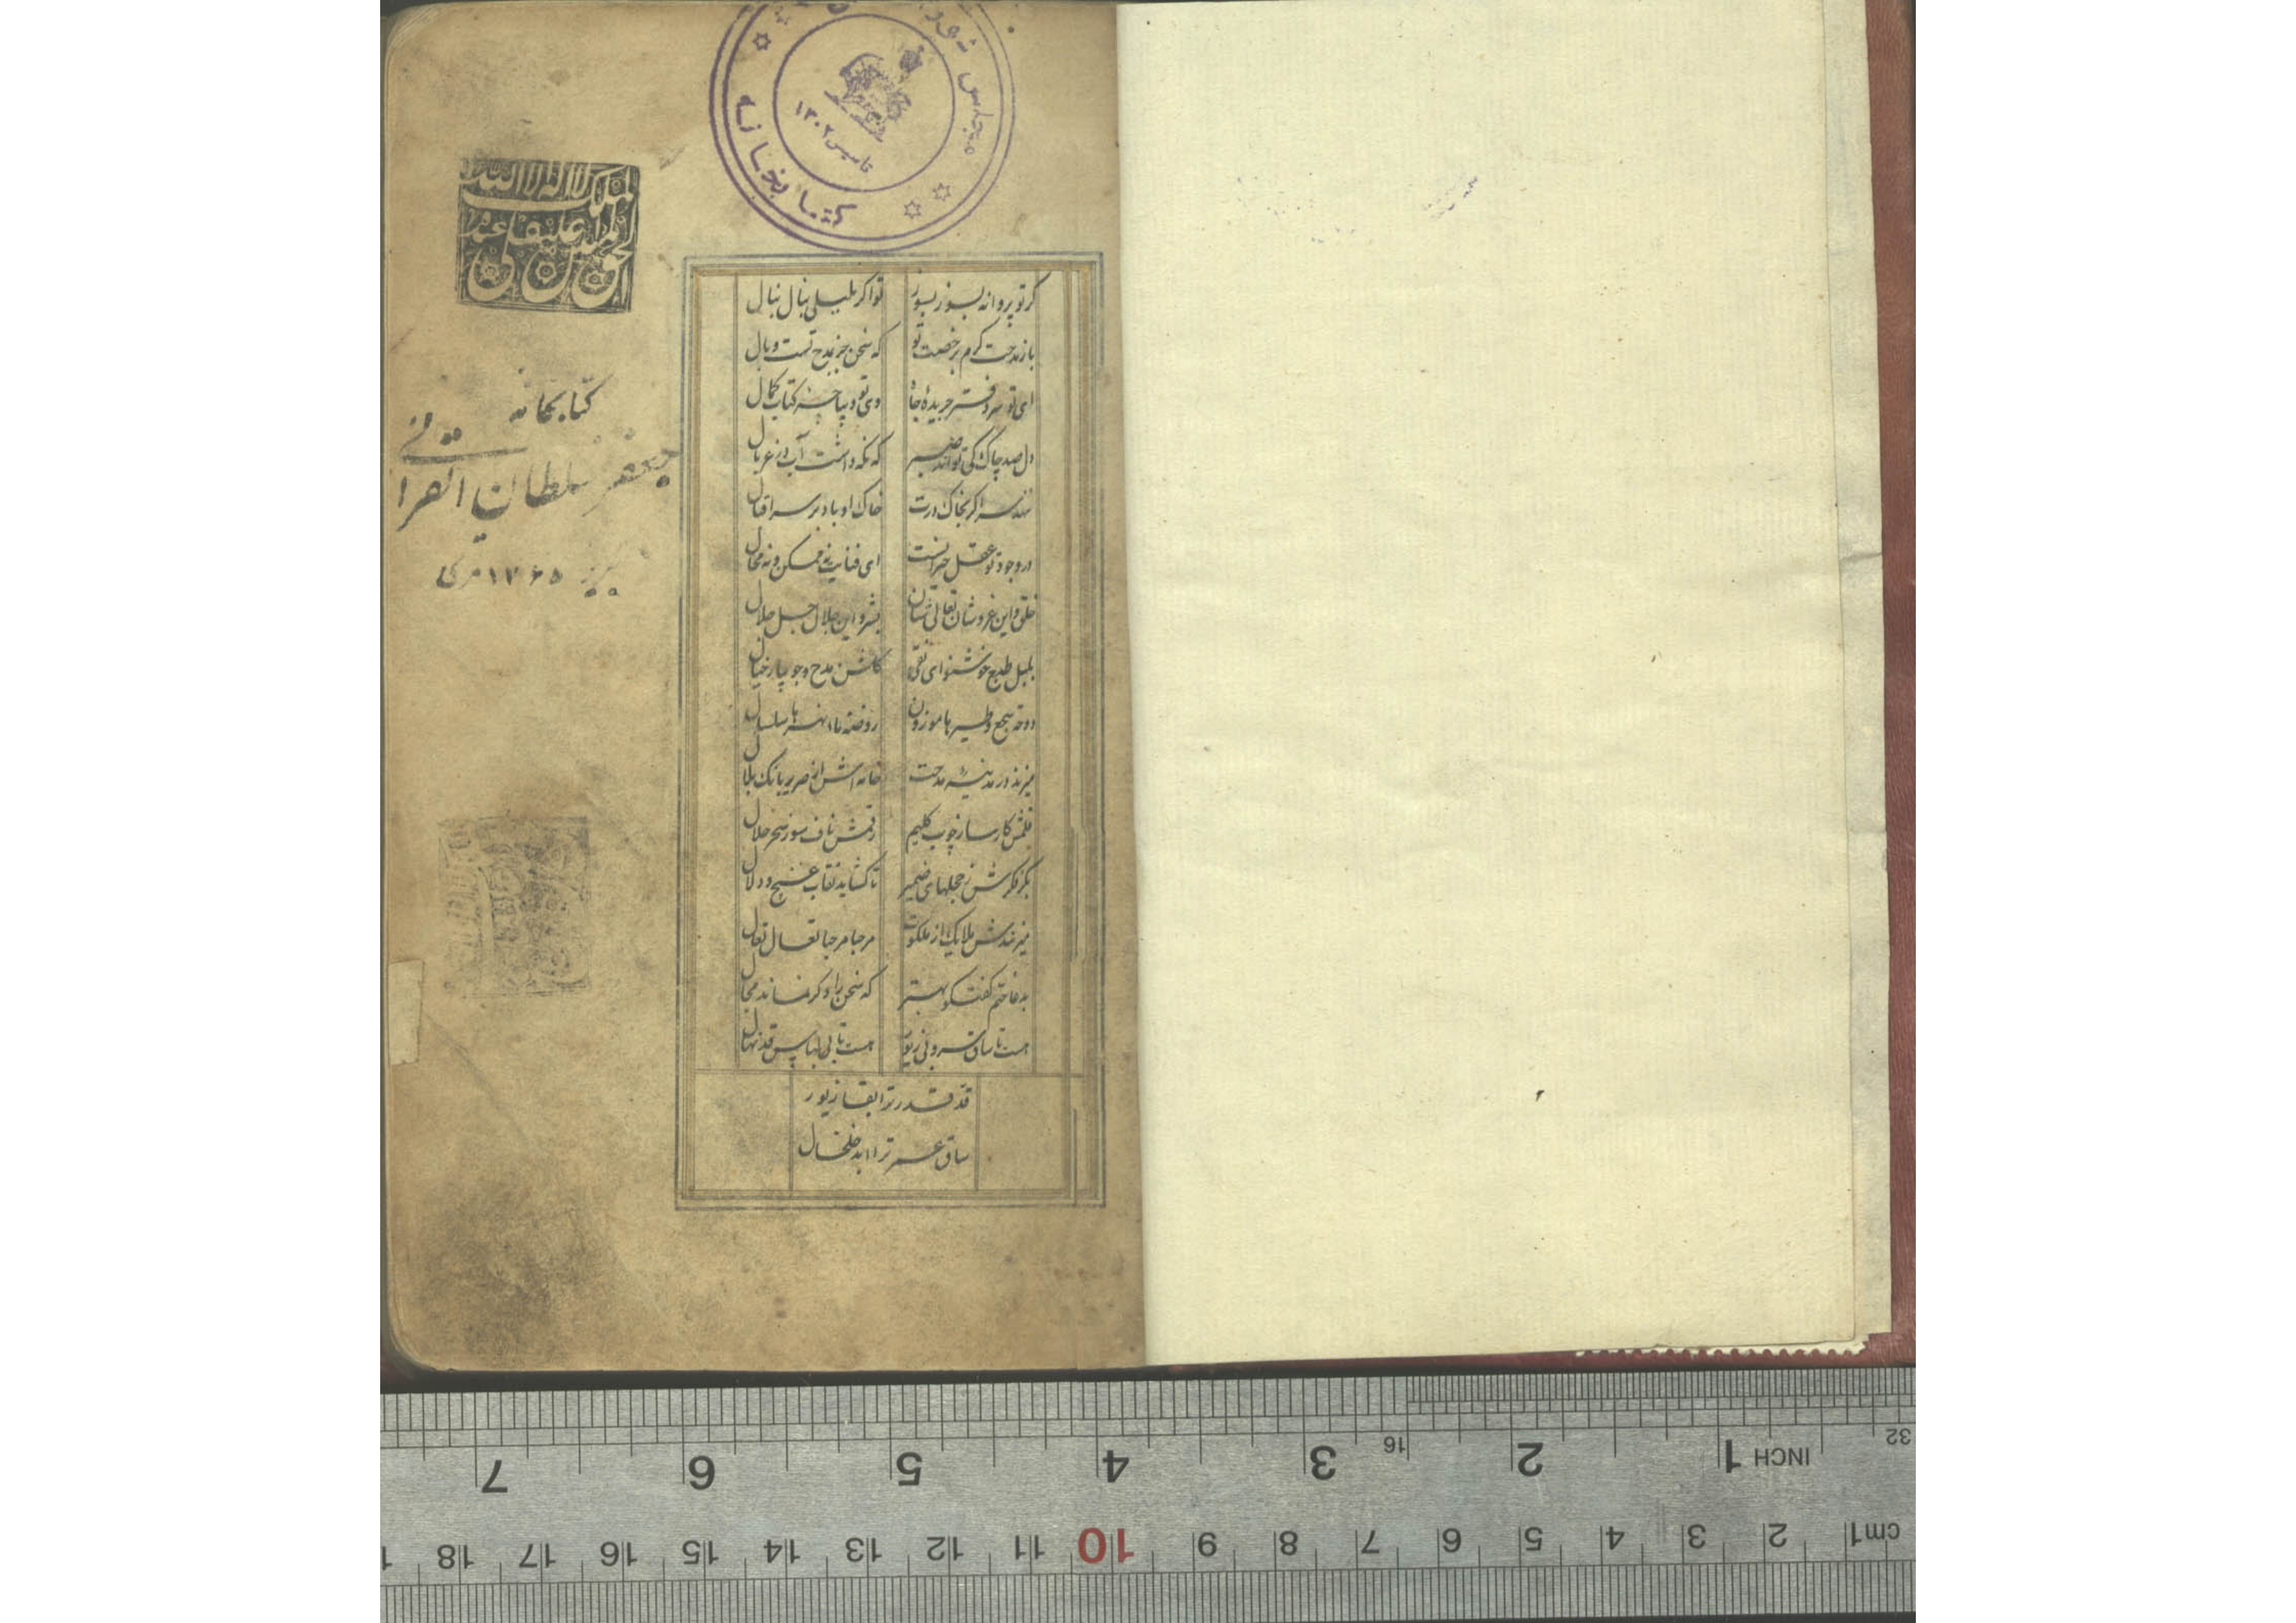 مجلس شورا
کتابخانه
تاسیس ۱۳۰۲
الملک لا اله الا الله
الحق المبین علینقلی عبده
کتابخانه
جعفر سلطان القرائی
تبریز ۱۳۶۵ قمری
گر تو پروانه بسوز بسوز تو اگر بلبلی بنال بنال
باز مدحت کرم برخصت تو که سخن جز مدح تست وبال
ای تو سردفتر جریده جاه وی تو دیباچه کتاب کمال
دل صد چاک کی تواند صبر که نگه داشت آب در غربال
ننهد سر اگر بخاک درت خاک او باد بر سر اقبال
در وجود تو عقل حیرانست ای فنایت نه ممکن و نه محال
خلق و این عز و شان تعالی شان بشر و این جلال جل جلال
بلبل طبع خوشنوای تقی گلشن مدح و جویبار خیال
دوحة سجع و طیرها موزون روضة ماء نهرها سلسال
میزند در مدینه مدحت خامه اش از صریر بانک بلال
قلمش کارساز چوب کلیم رقمش ناف سوز سحر حلال
بکر فکرش ز حجلهای ضمیر تا گشاید نقاب غنج و دلال
میزنندش ملایک از ملکوت مرحبا مرحبا تعال تعال
بدعا ختم گفتگو بهتر که سخن را دگر نماند مجال
هست تا ساق سرو بی زیور هست تا بی لباس قد نهال
قد قدر ترا بقا زیور
ساق عمر ترا ابد خلخال
7 6 5 4 3 16 2 1 INCH 32
18 17 16 15 14 13 12 11 10 9 8 7 6 5 4 3 2 1 cm